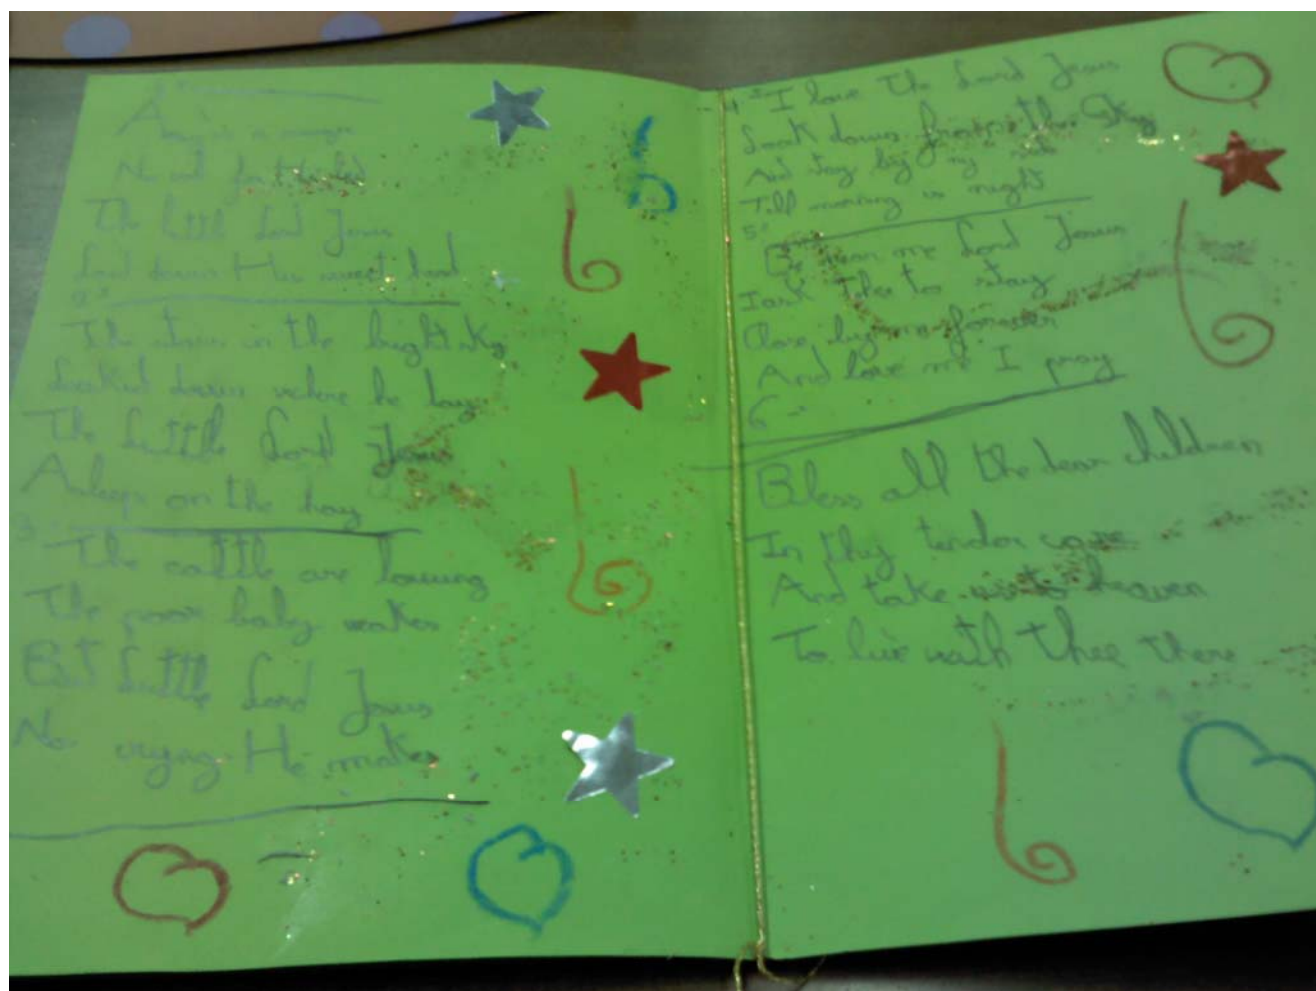 Away in a manger
No crib for His bed
The little Lord Jesus
Laid down His sweet head
2º
The stars in the bright sky
Looked down where he lay
The Little Lord Jesus
Asleep on the hay
3º
The cattle are lowing
The poor baby wakes
But Little Lord Jesus
No crying He makes
4º I love Thee Lord Jesus
Look down from the Sky
And stay by my side
Till morning is night
5º
Be near me Lord Jesus
I ask Thee to stay
Close by me forever
And love me I pray
6º
Bless all the dear children
In thy tender care
And take us to heaven
To live with Thee there